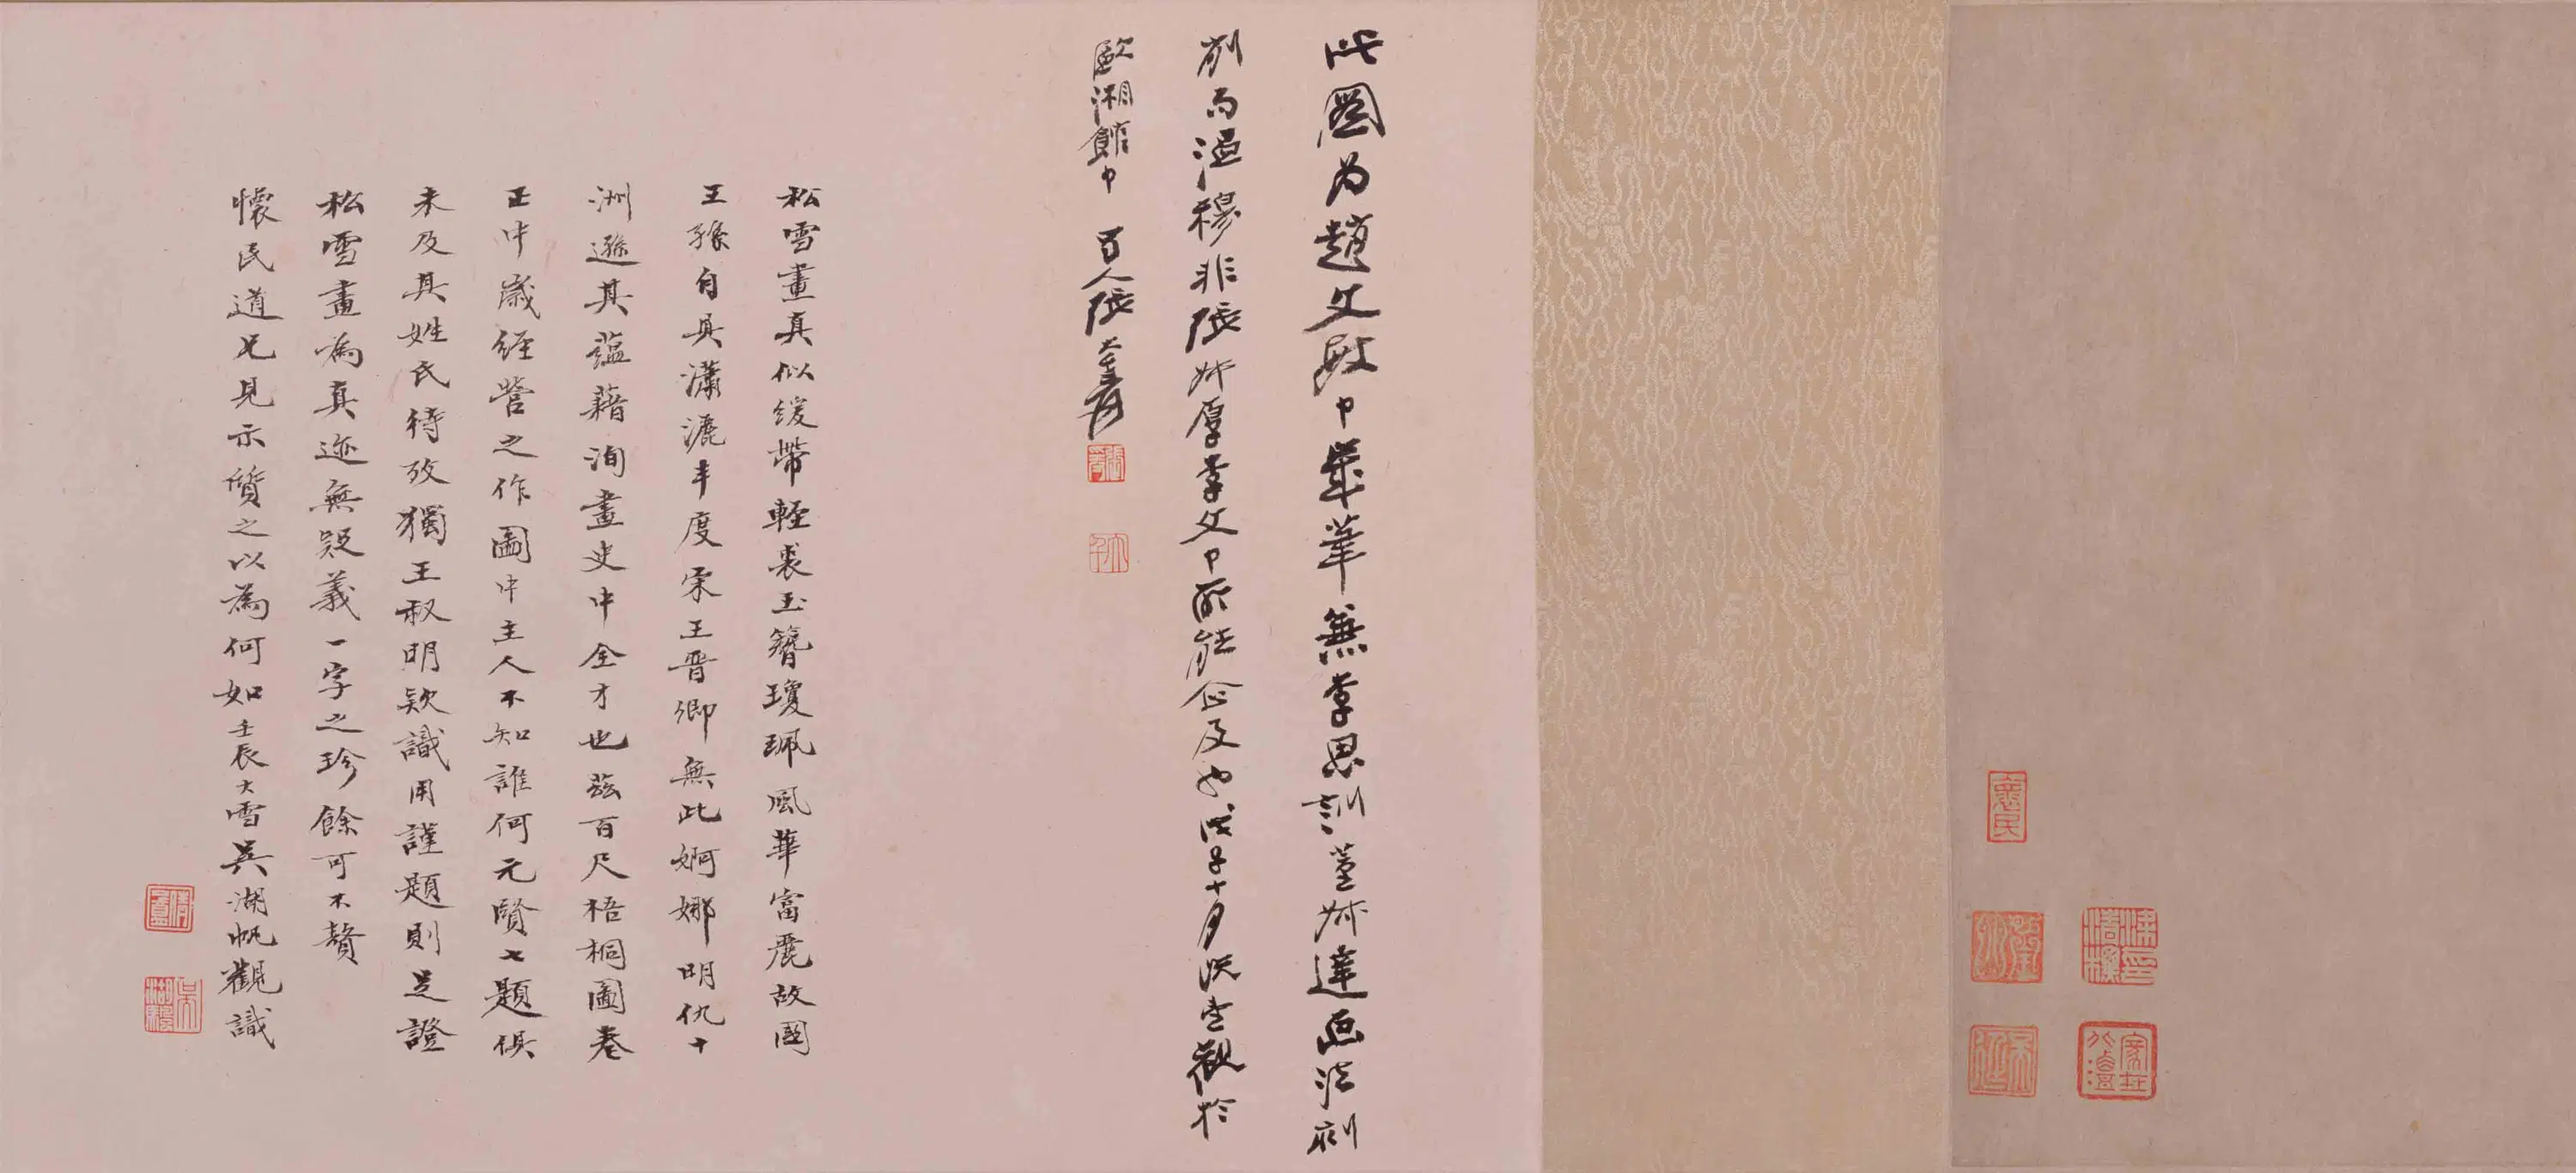 此圖為趙文敏中年筆無李思訓董叔達画法刻
削而温穆非張叔厚李文中所能企及也戊子十月既望觀於
歐湘館中 百人張大千爰
松雪畫真似緩帶輕裘玉簪瓊珮風華富麗故國
王孫自具瀟灑丰度宋王晋卿無此婀娜明仇十
洲遜其蘊藉洵畫史中全才也茲百尺梧桐圖卷
正中歲經營之作圖中主人不知誰何元賢七題俱
未及其姓氏待攷獨王叔明款識用謹題則足證
松雪畫為真迹無疑義一字之珍餘可不贅
懷民道兄見示質之以為何如壬辰大雪吳湖帆觀識